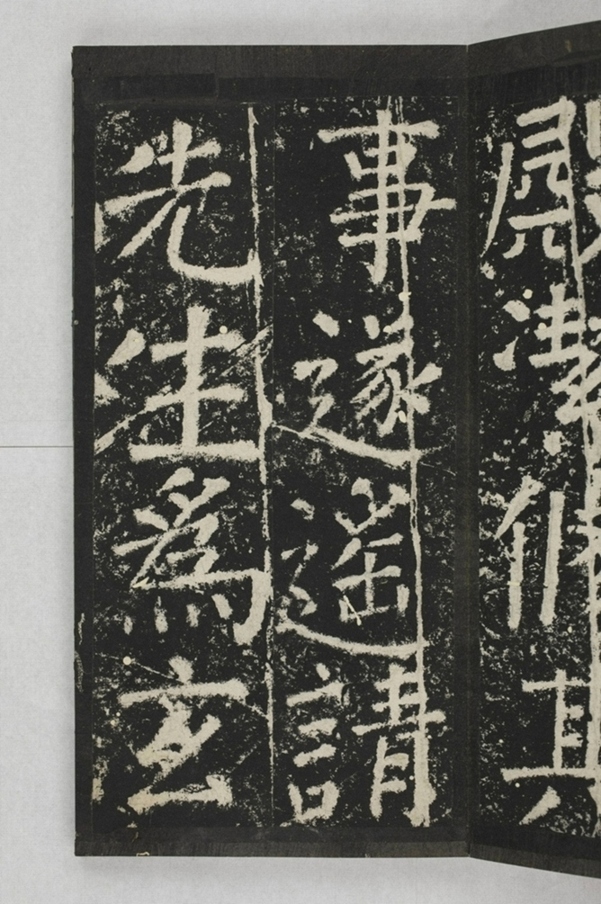 潔脩其
事遂遙請
先生爲玄